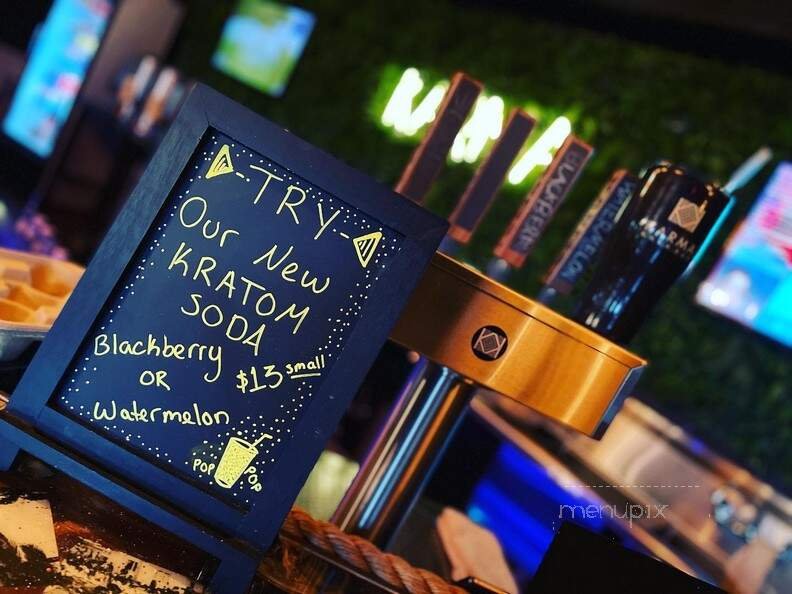 -TRY-
Our New
KRATOM
SODA
Blackberry
OR
Watermelon
$13 small
POP
POP
KARMA
BLACKBERRY
WATERMELON
menupix